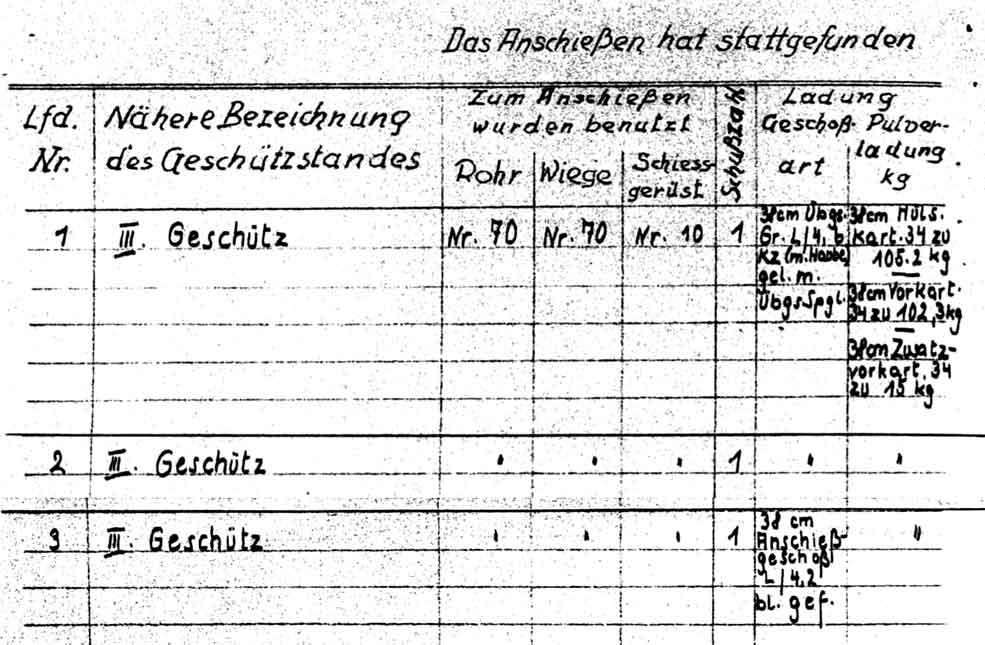 Das Anschießen hat stattgefunden
Lfd. Nr.
Nähere Bezeichnung
des Geschützstandes
Zum Anschießen
wurden benutzt
Rohr
Wiege
Schiess-
gerüst
Schußzahl
Ladung
Geschoß-
art
Pulver-
ladung
kg
1 III. Geschütz Nr. 70 Nr. 70 Nr. 10 1
38cm Übgs.
Gr. L/4,6
Kz (m. Haube)
gel. m.
Übgs Spgl.
38cm Hüls.
Kart. 34 zu
105.2 kg
38cm Vorkart.
34 zu 102,3kg
38cm Zusatz-
vorkart. 34
zu 15 kg
2 III. Geschütz " " " 1 " "
3 III. Geschütz " " " 1
38 cm
Anschieß-
geschoß
L/4,2
bl. gef.
"